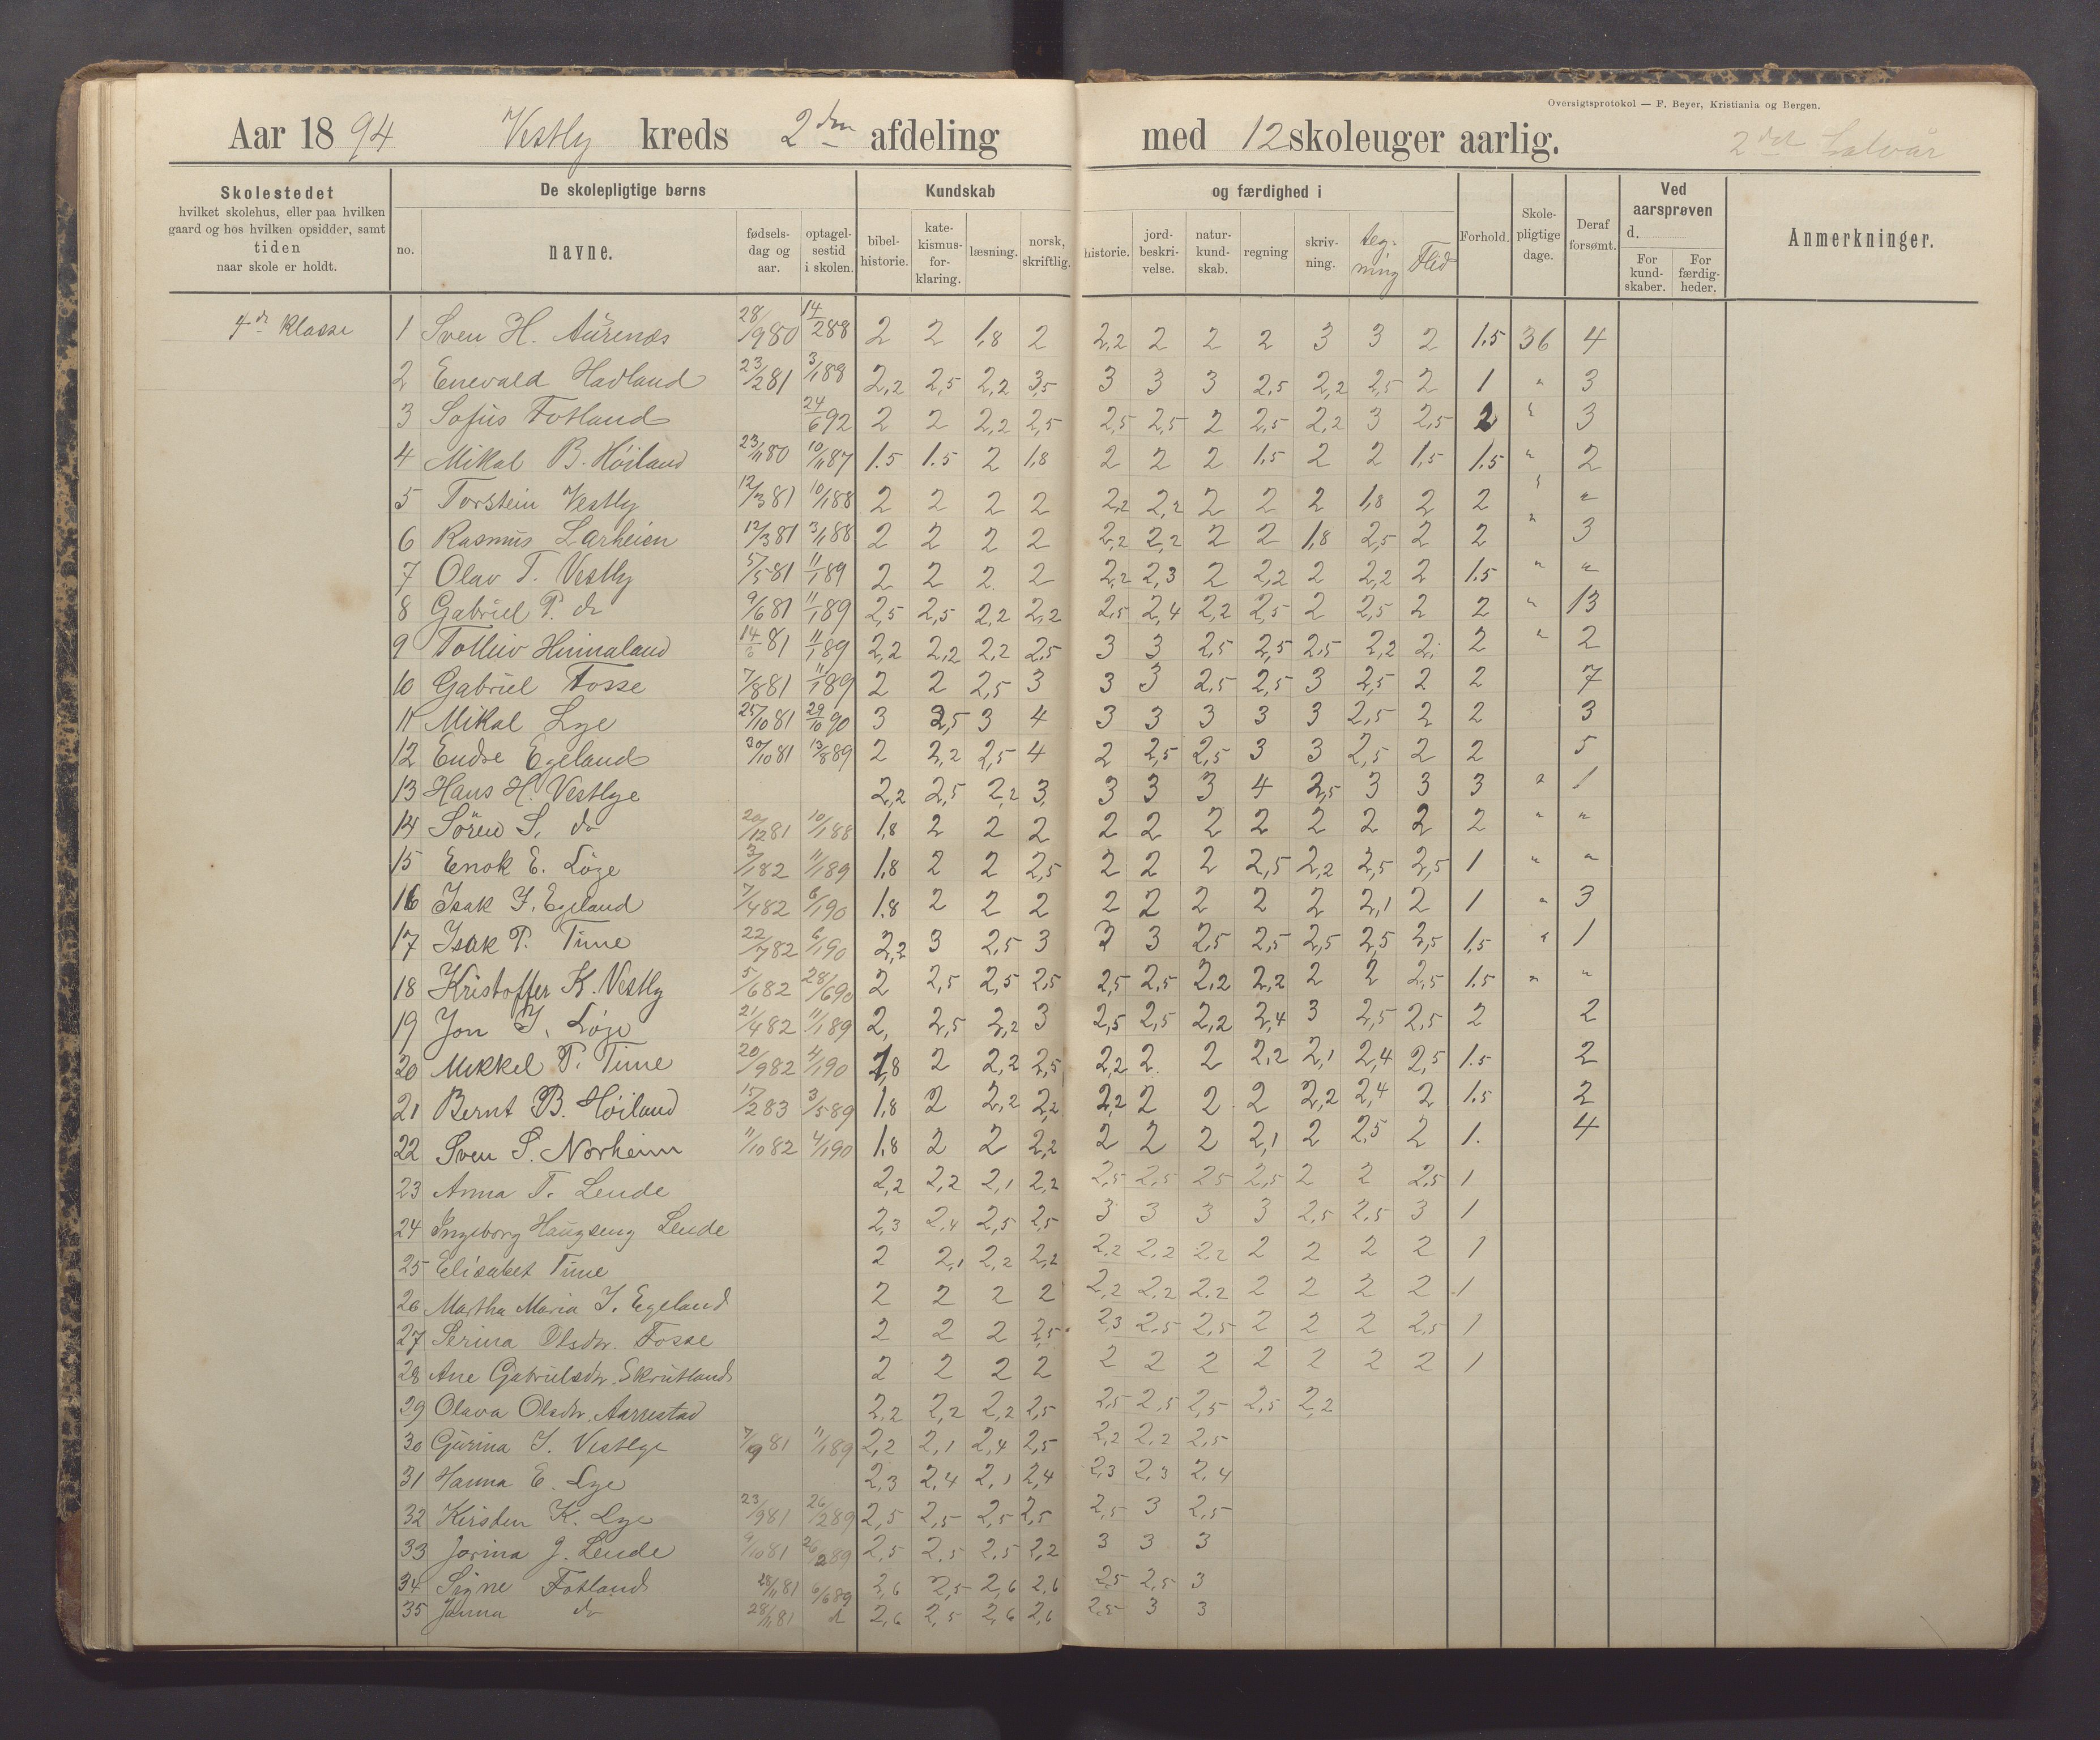 Oversigtsprotokol — F. Beyer, Kristiania og Bergen.
Aar 1894 Vestly kreds 2den afdeling med 12 skoleuger aarlig. 2det halvår
Skolestedet hvilket skolehus, eller paa hvilken gaard og hos hvilken opsidder, samt tiden naar skole er holdt.
De skolepligtige børns
no. navne. fødsels-dag og aar. optagel-sestid i skolen.
Kundskab og færdighed i
bibel-historie. kate-kismus-for-klaring. læsning. norsk, skriftlig. historie. jord-beskri-velse. natur-kund-skab. regning skriv-ning. tegning Flid
Forhold. Skole-pligtige dage. Deraf forsømt. Ved aarsprøven d. For kund-skaber. For færdig-heder. Anmerkninger.
4de Klasse 1 Sven H. Aurenæs 28/9 80 14/2 88 2 2 1,8 2 2,2 2 2 2 3 3 2 1.5 36 4
2 Enevald Hadland 23/2 81 3/1 88 2,2 2,5 2,2 3,5 3 3 3 2,5 2,2 2,5 2 1 " 3
3 Sofus Fotland 24/6 92 2 2 2,2 2,5 2,5 2,5 2 2,5 2,2 3 2,5 2 " 3
4 Mikal B. Höiland 23/11 80 10/11 87 1.5 1.5 2 1,8 2 2 2 1,5 2 2 1,5 1.5 " 2
5 Torstein Vestly 12/3 81 10/1 88 2 2 2 2 2,2 2,2 2 2 2 1,8 2 2 " "
6 Rasmus Larheien 12/3 81 3/1 88 2 2 2 2 2,2 2,2 2 2 1,8 2,5 2 2 " 3
7 Olav T. Vestly 5/5 81 11/1 89 2 2 2 2 2,2 2,3 2 2,2 2 2,2 2 1.5 " "
8 Gabriel P. do 9/6 81 11/1 89 2,5 2,5 2,2 2,2 2,5 2,4 2,2 2,5 2 2,5 2 2 " 13
9 Tolleiv Hinnaland 14/6 81 11/1 89 2,2 2,2 2,2 2,5 3 3 2,5 2,5 2,5 2,2 2 2 " 2
10 Gabriel Fosse 7/8 81 11/1 89 2 2 2,5 3 3 3 2,5 2,5 3 2,5 2 2 7
11 Mikal Lye 25/10 81 29/10 90 3 2,5 3 4 3 3 3 3 3 2,5 2 2 3
12 Endre Egeland 30/10 81 13/8 89 2 2,2 2,5 4 2 2,5 2,5 3 3 2,5 2 2 5
13 Hans H. Vestlye 2,2 2,5 2,2 3 3 3 3 4 2,5 3 3 3 " 1
14 Sören S. do 20/12 81 10/1 88 1,8 2 2 2 2 2 2 2 2 2 2 2 " "
15 Enok E. Löge 3/1 82 11/1 89 1,8 2 2 2,5 2 2 2 2,5 2,2 2,5 2,5 1 " "
16 Isak J. Egeland 7/4 82 6/1 90 1.8 2 2 2 2 2 2 2 2 2,1 2 1 " 3
17 Isak P. Time 22/7 82 6/1 90 2,2 3 2,5 3 3 3 2,5 2,5 2,5 2,5 2,5 1,5 " 1
18 Kristoffer K. Vestly 5/6 82 28/6 90 2 2,5 2,5 2,5 2,5 2,5 2,2 2,2 2 2 2,5 1.5 " "
19 Jon J. Löge 21/4 82 11/1 89 2, 2,5 2,2 3 2,5 2,5 2,2 2,4 3 2,5 2,5 2 2
20 Mikkel P. Time 20/9 82 4/1 90 1,8 2 2,2 2,5 2,2 2. 2 2,2 2,1 2,4 2,5 1.5 2
21 Bernt B. Höiland 15/2 83 3/5 89 1,8 2 2,2 2,2 2,2 2 2 2 2,2 2,4 2 1.5 2
22 Sven S. Norheim 11/10 82 4/1 90 1,8 2 2 2,2 2 2 2 2,1 2 2,5 2 1. 4
23 Anna T. Lende 2,2 2,2 2,1 2,2 2,5 2,5 2,5 2,5 2 2 2,5 1
24 Ingeborg Haugseng Lende 2,3 2,4 2,5 2,5 3 3 3 3 2,5 2.5 3 1
25 Elisabet Time 2 2,1 2,2 2,2 2,2 2,2 2,2 2 2 2 2 1
26 Martha Maria J. Egeland 2 2 2 2 2,2 2,2 2,2 2 2 2 2 1
27 Serina Olsdtr. Fosse 2 2 2 2,5 2,3 2,5 2,5 2 2 2 2,5 1
28 Ane Gabrielsdtr. Skrutland 2 2 2 2 2 2 2 2 2 2 2 1
29 Olava Olsdtr. Aarrestad 2,2 2,2 2,2 2,5 2,5 2,5 2,5 2,5 2,2
30 Gurina J. Vestlye 7/9 81 11/1 89 2,2 2,1 2,4 2,5 2,2 2,2 2,5
31 Hanna E. Lye 2,3 2,4 2,1 2,4 2,3 2,3 2,4
32 Kirsten K. Lye 23/9 81 26/2 89 2,5 2,5 2,5 2,5 2,5 3 2,5
33 Jorina J. Lende 9/10 81 26/2 89 2,5 2,5 2,5 2,2 3 3 3
34 Signe Fotland 28/11 81 6/6 89 2,6 2,5 2,6 2,6 2,5 2,5 3
35 Janna do 28/11 81 do 2,6 2,5 2,6 2,6 2,5 3 3